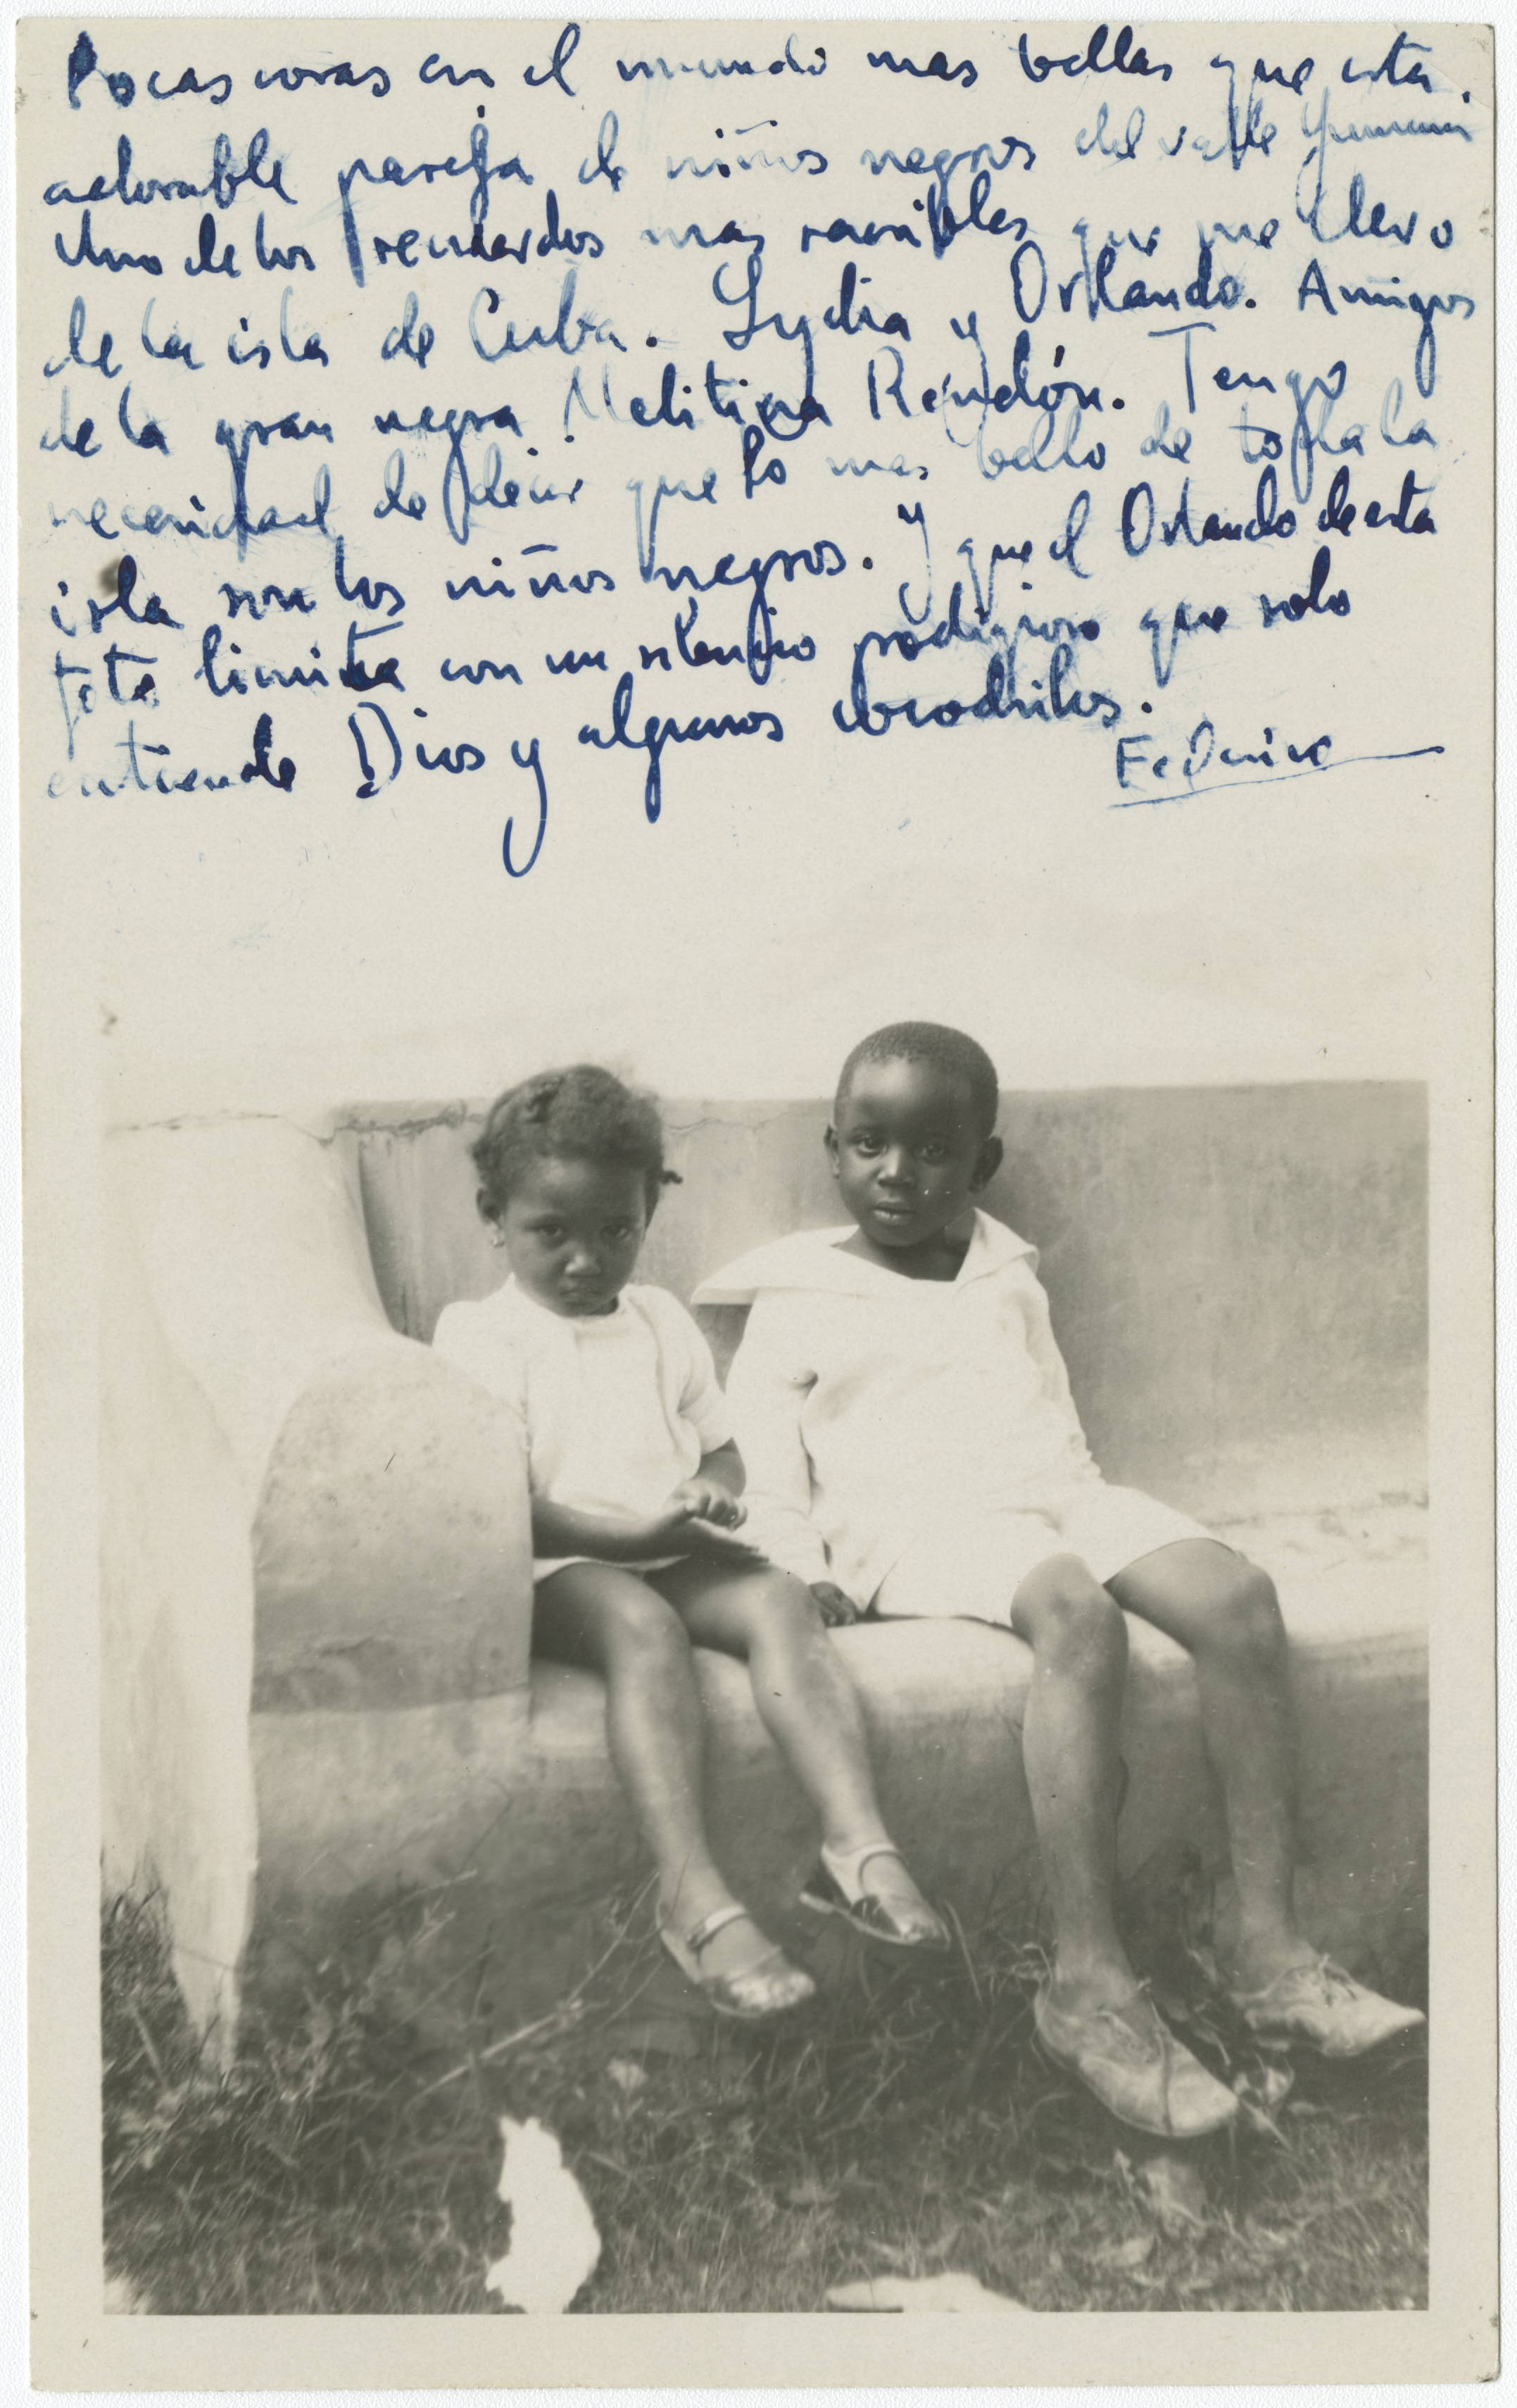 Pocas cosas en el mundo mas bellas que esta
adorable pareja de niños negros del valle Yumurí
Uno de los recuerdos mas sensibles que me llevo
de la isla de Cuba. Lydia y Orlando. Amigos
de la gran negra Melitina Rendón. Tengo
necesidad de decir que lo mas bello de toda la
isla son los niños negros. Y que el Orlando de esta
foto limita con un silencio prodigioso que solo
entiende Dios y algunos cocodrilos.
Federico